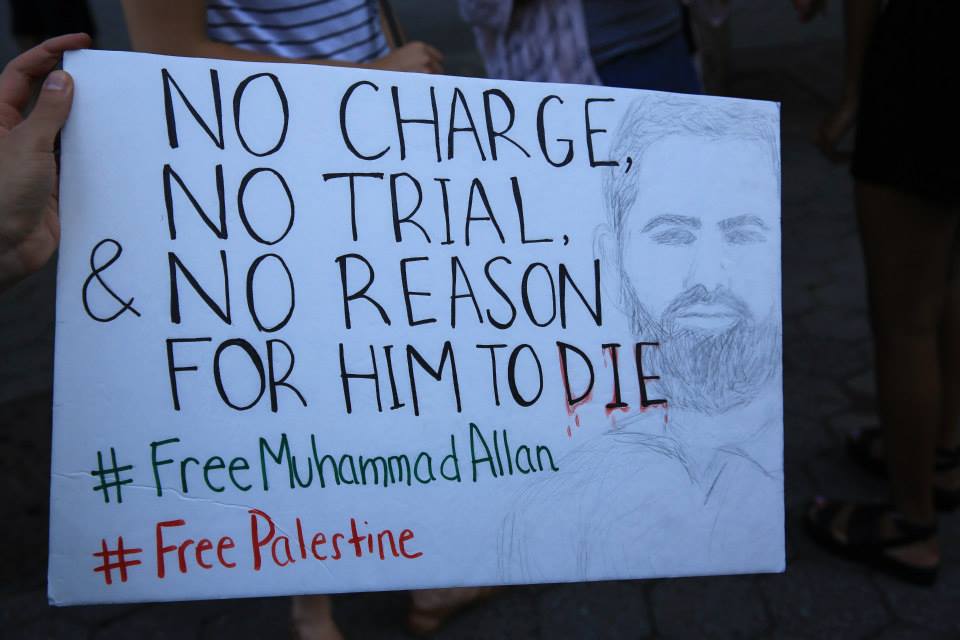 NO CHARGE,
NO TRIAL,
& NO REASON
FOR HIM TO DIE
#FreeMuhammadAllan
#FreePalestine